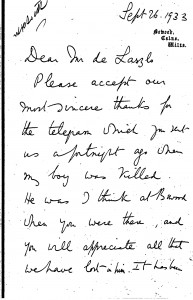 Sept 26. 1933
Bowood,
Calne,
Wilts.
Dear Mr de Laszlo
Please accept our
most sincere thanks for
the telegram which you sent
us a fortnight ago when
my boy was killed.
He was I think at Bowood
when you were there, and
you will appreciate all that
we have lost in him. It has been